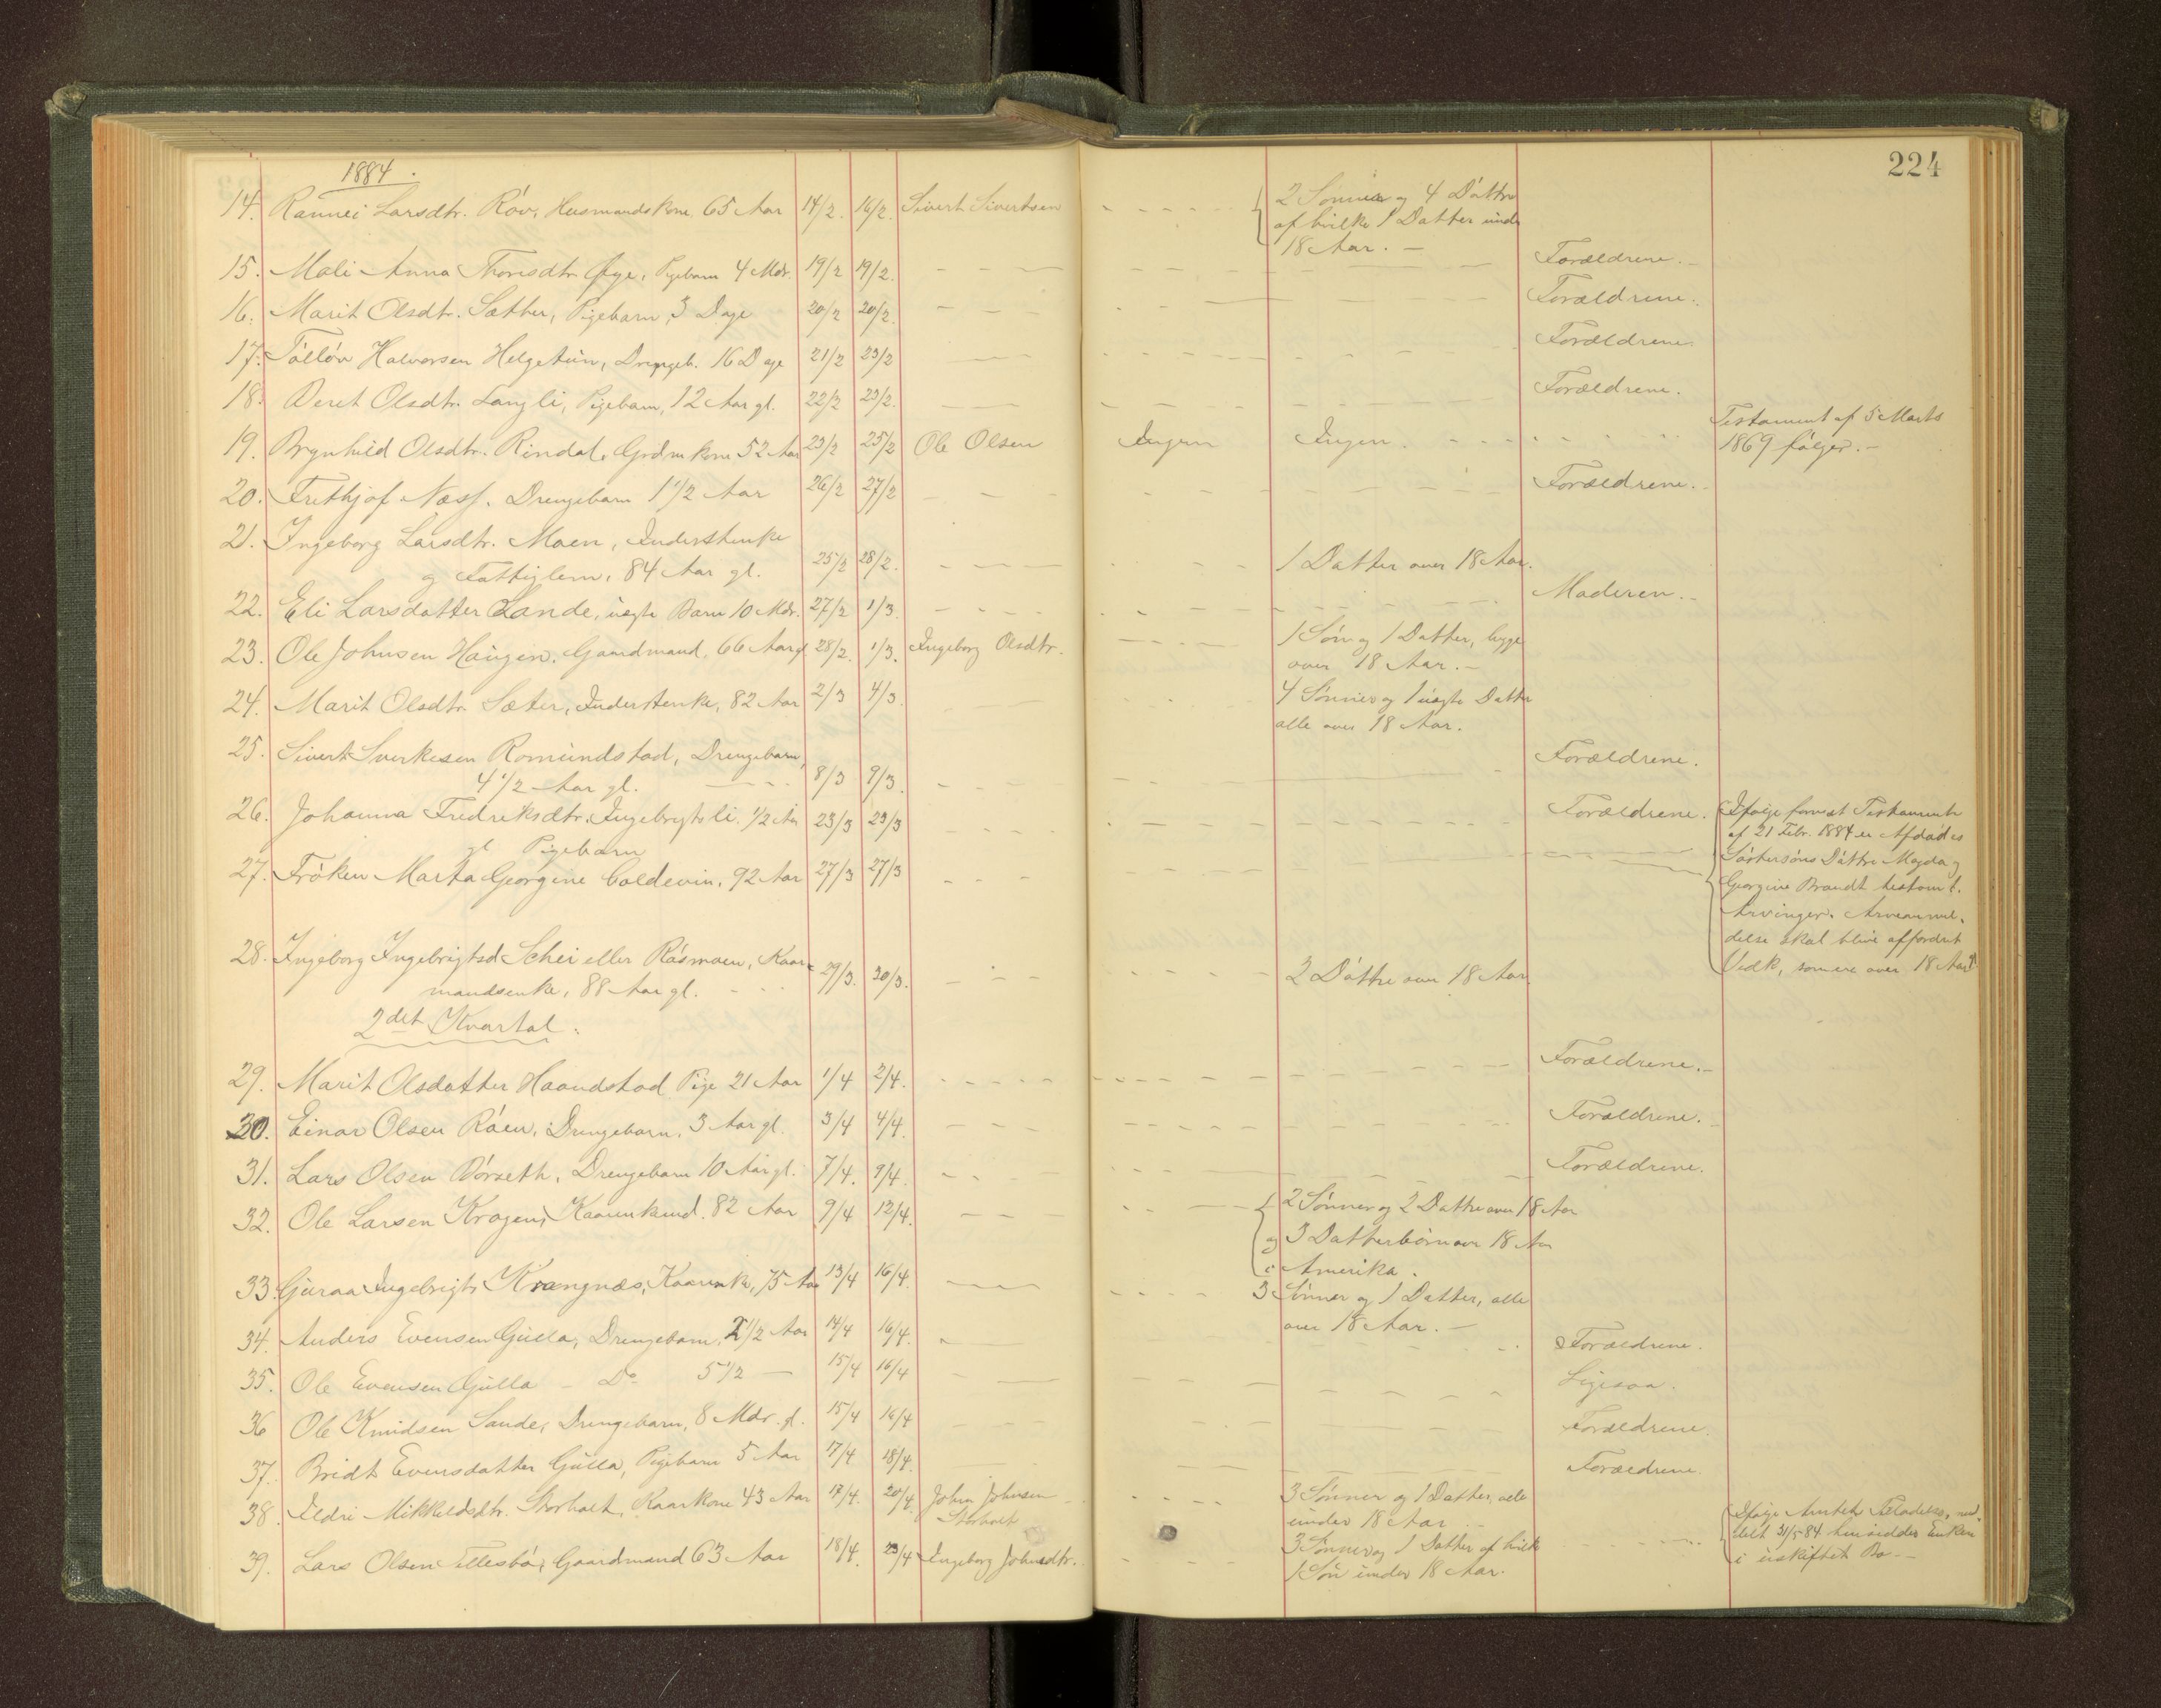 224
1884.
14. Rannei Larsdtr. Röv, Husmandskone 65 Aar 14/2. 16/2. Sivert Sivertsen 2 Sönner og 4 Döttre
af hvilke 1 Datter under
18 Aar. —
15. Mali Anna Thorisdtr. Øye, Pigebarn 4 Mdr. 19/2 19/2. Forældrene. —
16. Marit Olsdtr. Sæther, Pigebarn, 3 Dage 20/2 20/2. Forældrene.
17. Töllöv Halvorsen Helgetun, Drengeb. 16 Dage 21/2 23/2 Forældrene.
18. Beret Olsdtr. Langli, Pigebarn, 12 Aar gl. 22/2 23/2. Forældrene.
19. Brynhild Olsdtr. Rindal, Grdmkone 52 Aar 23/2 25/2 Ole Olsen Ingen Ingen. Testament af 5 Marts
1869 fölger. —
20. Frithjof Næss. Drengebarn 1 1/2 Aar 26/2 27/2 Forældrene.
21. Ingeborg Larsdtr. Moen, Inderstenke
og Fattiglem, 84 Aar gl. 25/2 28/2. 1 Datter over 18 Aar.
22. Eli Larsdatter Lande, uægte Barn 10 Mdr. 27/2 1/3. Moderen. —
23. Ole Johnsen Haugen, Gaardmand, 66 Aar gl 28/2. 1/3. Ingeborg Olsdtr. 1 Sön og 1 Datter, begge
over 18 Aar. —
24. Marit Olsdtr. Sæter, Inderstenke, 82 Aar 2/3 4/3 4 Sönner og 1 uægte Datter
alle over 18 Aar.
25. Sivert Sverkesen Romundstad, Drengebarn,
4 1/2 Aar gl. 8/3 9/3. Forældrene.
26. Johanna Fredriksdtr. Ingebrigtsli. 1/2 Aar 23/3 23/3 Forældrene.
gl Pigebarn
27. Fröken Marta Georgine Coldevin, 92 Aar 27/3 27/3 Ifölge forevist Testamente
af 21 Febr. 1884 er Afdödes
Söstersöns Döttre Magda og
Georgine Brandt testamt.
Arvinger. Arveanmel-
delse skal blive affordret
Vedk, som ere over 18 Aar
28. Ingeborg Ingebrigtsd. Schei eller Rösmoen, Kaar-
mandsenke, 88 Aar gl. 29/3. 30/3. 2 Döttre over 18 Aar
2det Kvartal.
29. Marit Olsdatter Haandstad Pige 21 Aar 1/4 2/4. Forældrene. —
30. Einar Olsen Röen, Drengebarn, 3 Aar gl. 3/4 4/4. Forældrene.
31. Lars Olsen Börseth, Drengebarn 10 Aar gl. 7/4. 9/4. Forældrene.
32. Ole Larsen Krogen, Kaarenkmd. 82 Aar 9/4 12/4. 2 Sönner og 2 Döttre over 18 Aar
og 3 Datterbörn over 18 Aar
i Amerika.
33. Guraa Ingebrigts Krangnæs, Kaarenke, 75 Aar 13/4 16/4. 3 Sönner og 1 Datter, alle
over 18 Aar. —
34. Anders Evensen Gulla, Drengebarn, 2 1/2 Aar 14/4 16/4. Forældrene.
35. Ole Evensen Gulla — Do 5 1/2 — 15/4 16/4 Ligesaa.
36 Ole Knudsen Sande, Drengebarn, 8 Mdr. gl. 15/4 16/4 Forældrene.
37. Bridt Evensdatter Gulla, Pigebarn 5 Aar 17/4 18/4. Forældrene.
38. Ildri Mikkelsdtr. Storholt, Kaarkone 43 Aar 17/4. 20/4. John Johnsen
Storholt 3 Sönner og 1 Datter, alle
under 18 Aar
39. Lars Olsen Tellesbö, Gaardmand 63 Aar 18/4. 23/4 Ingeborg Johnsdtr. 3 Sönner og 1 Datter af hvilke
1 Sön under 18 Aar. Ifölge Amtets Tilladelse, med-
delt 31/5 84 hensidder Enken
i uskiftet Bo. —